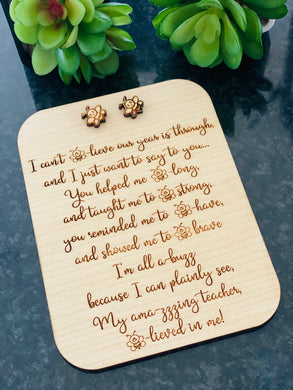 I can't 🐝-lieve our year is through,
and I just want to say to you...
You helped me 🐝-long,
and taught me to 🐝 strong,
you reminded me to 🐝-have,
and showed me to 🐝 brave
I'm all a-buzz
because I can plainly see,
My ama-zzzing teacher,
🐝-lieved in me!